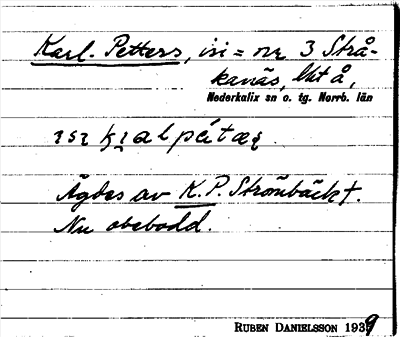 Karl-Petters, iri = nr 3 Strå-
kanäs, Vit å,
Nederkalix sn o. tg. Norrb. län
Ägdes av K. P. Strömbäck†.
Nu obebodd.
RUBEN DANIELSSON 1939